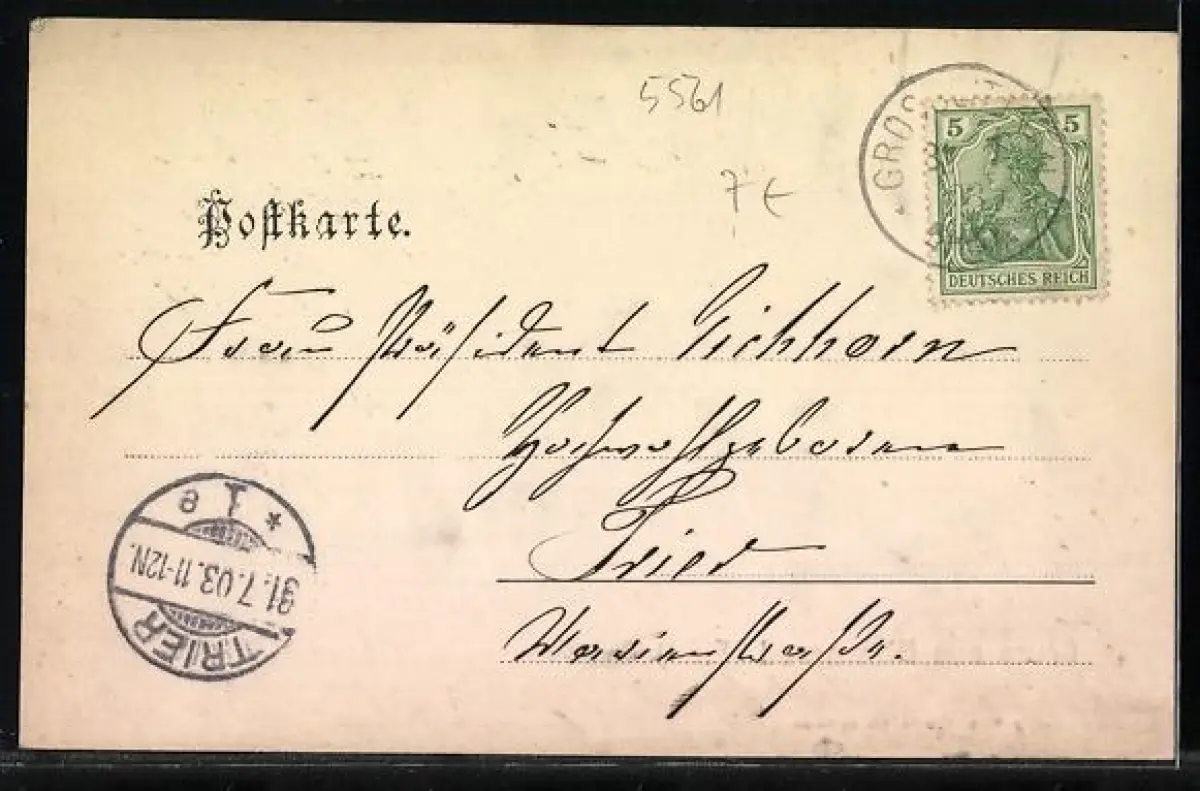 5561
7 €
5 5
DEUTSCHES REICH
GROS
Postkarte.
Frau Präsident Eichhorn
Hochwohlgeboren
Trier
* 1 e
31.7.03.11-12N.
TRIER